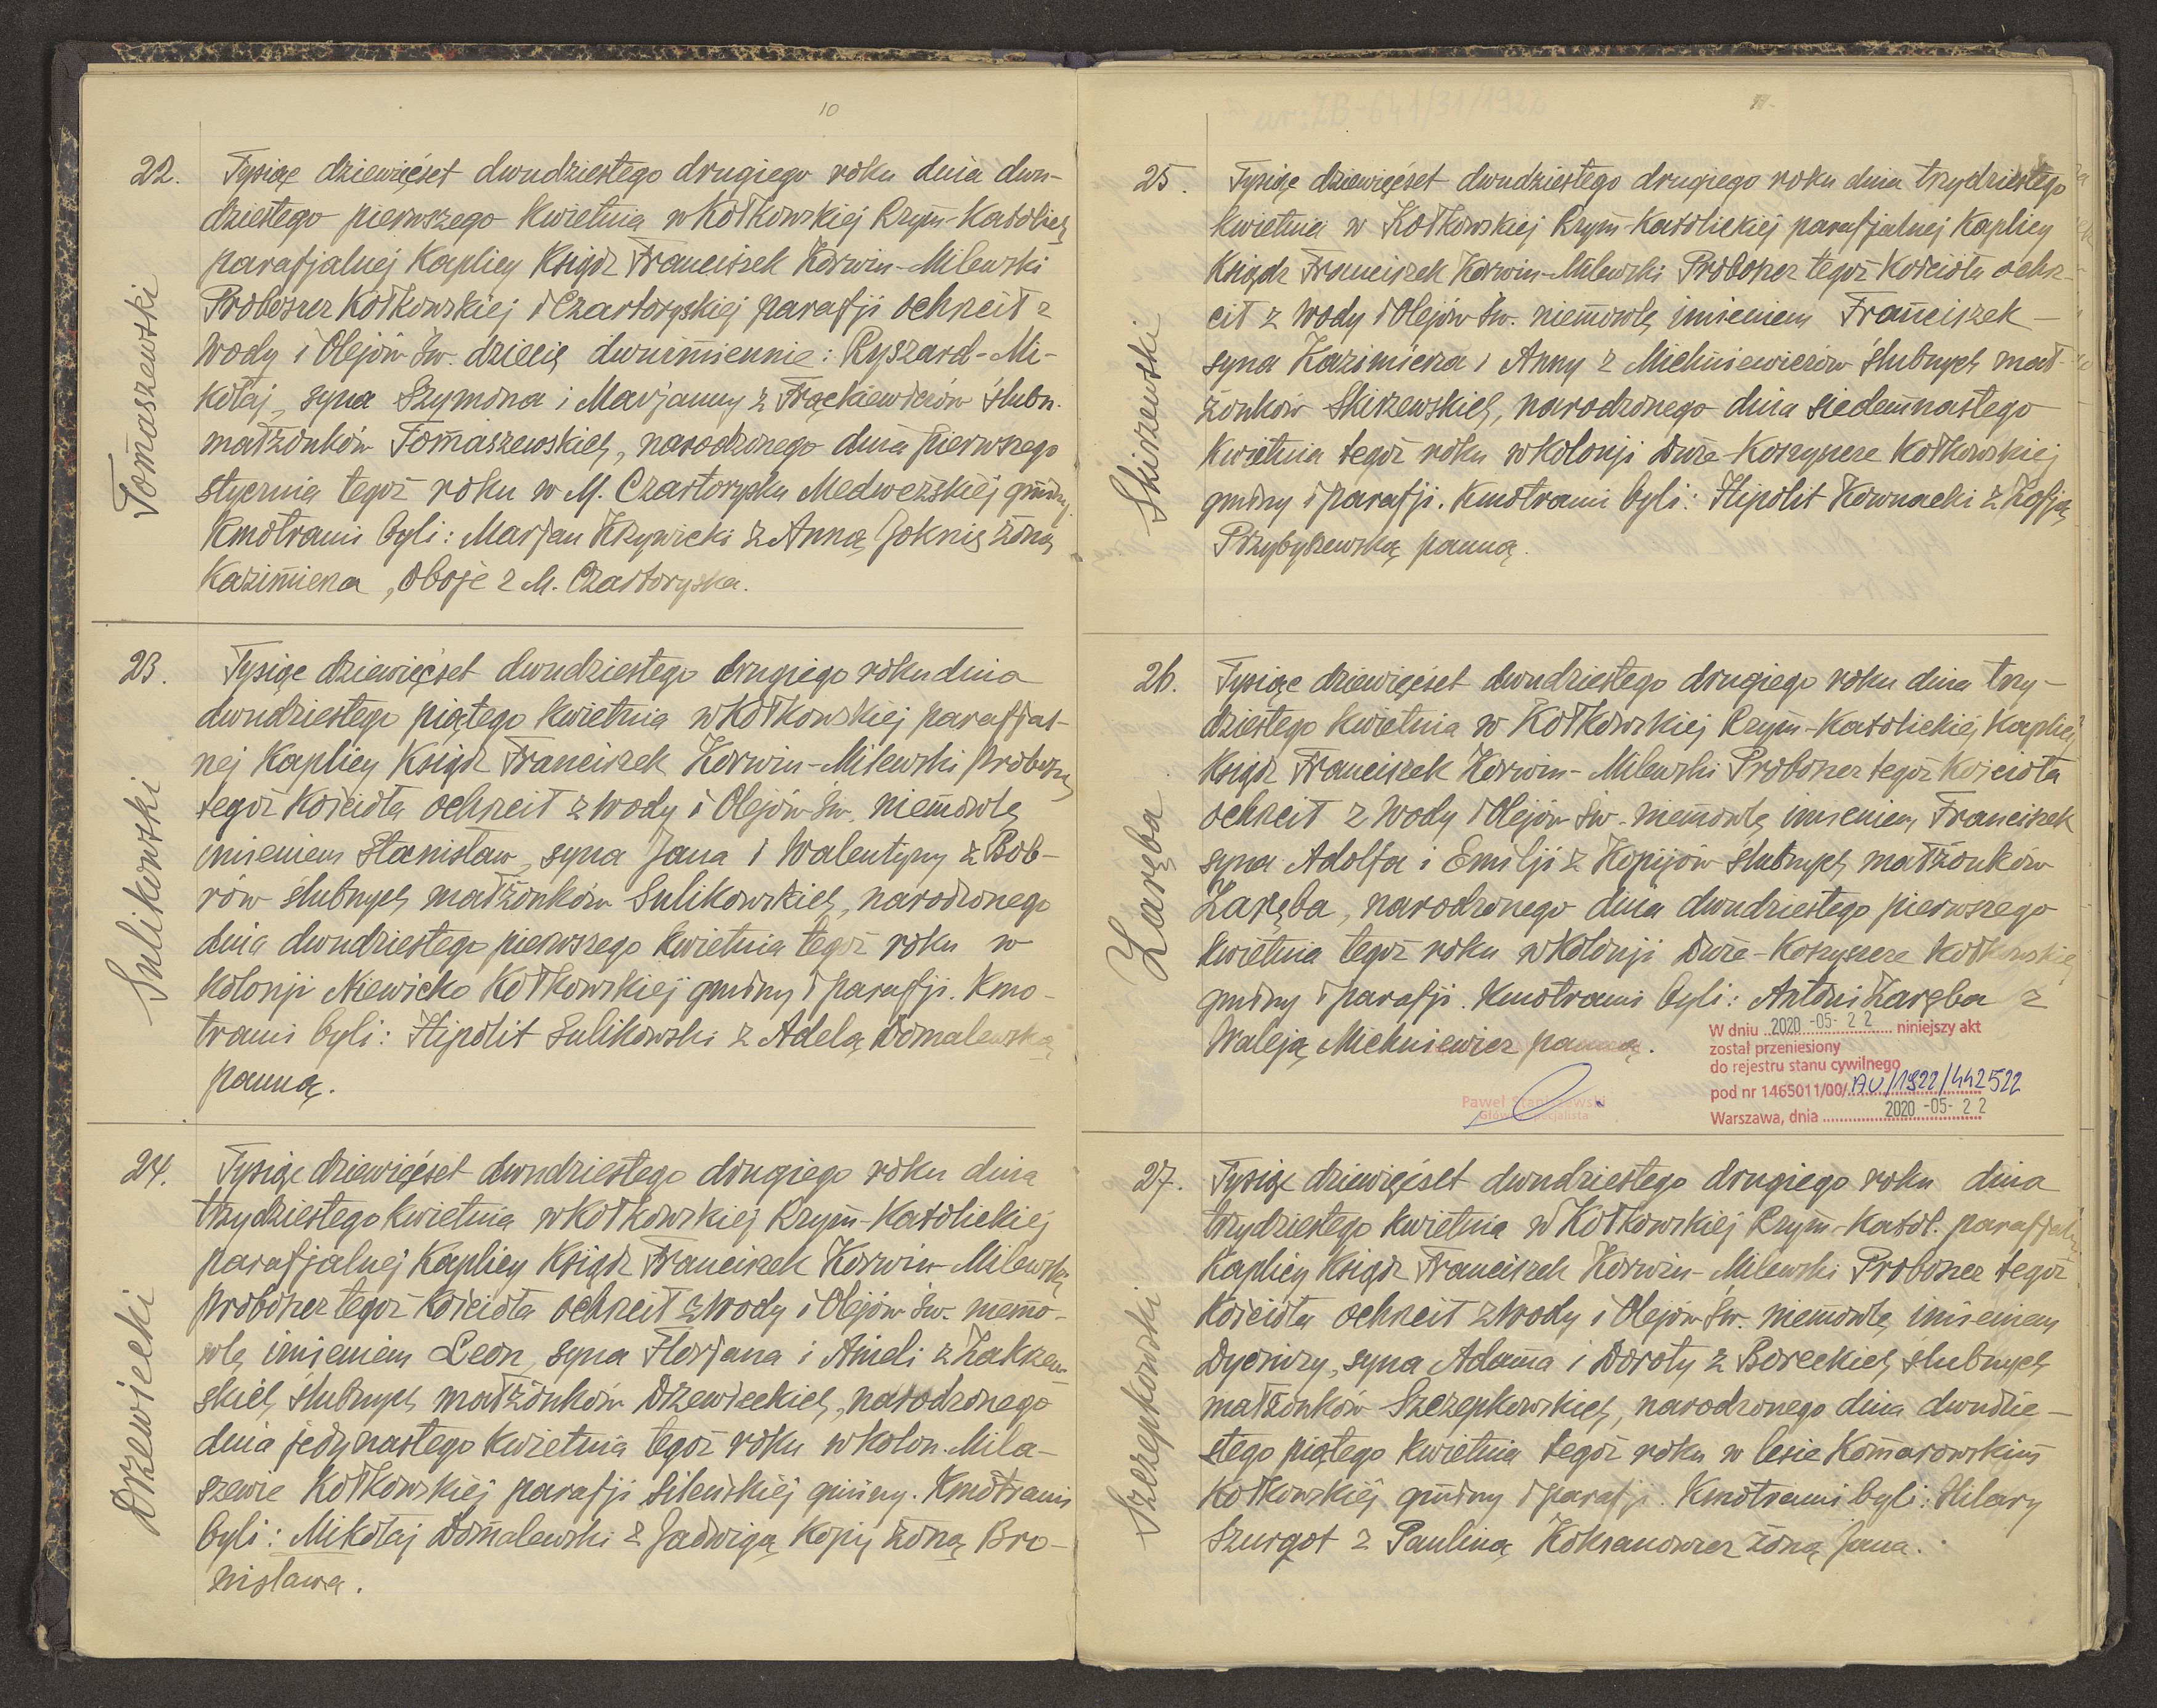 10
22.
Tomaszewski
Tysiąc dziewięćset dwudziestego drugiego roku dnia dwu-
dziestego pierwszego Kwietnia w Kołkowskiej Rzym-Katolick
parafjalnej Kaplicy Ksiądz Franciszek Korwin-Milewski
Proboszcz Kołkowskiej i Czartoryskiej parafji ochrcił z
Wody i Olejów Św. dziecię dwuimiennie: Ryszard-Mi-
kołaj, syna Szymona i Marjanny z Frąckiewiczów ślubn.
małżonków Tomaszewskich, narodzonego dnia pierwszego
stycznia tegoż roku w M. Czartorysku Medweżskiej gminy
Kmotrami byli: Marjan Krzywicki z Anną Joknię żoną
Kazimierza, oboje z M. Czartoryska.
23.
Sulikowski
Tysiąc dziewięćset dwudziestego drugiego roku dnia
dwudziestego piątego Kwietnia w Kołkowskiej parafjal-
nej Kaplicy Ksiądz Franciszek Korwin-Milewski Proboszcz
tegoż Kościoła ochrcił z Wody i Olejów Św. niemowlę
imieniem Stanisław, syna Jana i Walentyny z Bob-
rów ślubnych małżonków Sulikowskich, narodzonego
dnia dwudziestego pierwszego Kwietnia tegoż roku w
Kolonji Niewicko Kołkowskiej gminy i parafji. Kmo-
trami byli: Hipolit Sulikowski z Adelą Domalewską
panną.
24.
Drzewiecki
Tysiąc dziewięćset dwudziestego drugiego roku dnia
trzydziestego Kwietnia w Kołkowskiej Rzym-Katolickiej
parafjalnej Kaplicy Ksiądz Franciszek Korwin-Milewski
Proboszcz tegoż Kościoła ochrcił z Wody i Olejów Św. niemo-
wlę imieniem Leon, syna Florjana i Anieli z Zakrzew
skich ślubnych małżonków Drzewieckich, narodzonego
dnia jedynastego Kwietnia tegoż roku w kolon. Mila-
szewie Kołkowskiej parafji Sileńskiej gminy. Kmotrami
byli: Mikołaj Domalewski z Jadwigą Kopij żoną Bro-
nisława.
25.
Skirzewski
Tysiąc dziewięćset dwudziestego drugiego roku dnia trzydziestego
Kwietnia w Kołkowskiej Rzym-Katolickiej parafjalnej Kaplicy
Ksiądz Franciszek Korwin-Milewski Proboszcz tegoż Kościoła ochr-
cił z Wody i Olejów Św. niemowlę imieniem Franciszek-
syna Kazimierza i Anny z Michniewiczów ślubnych mał-
żonków Skirzewskich, narodzonego dnia siedemnastego
Kwietnia tegoż roku w Kolonji Duże-Koszyszcze Kołkowskiej
gminy i parafji. Kmotrami byli: Hipolit Kownacki z Zofją
Przybyszewską panną.
26.
Zaręba
Tysiąc dziewięćset dwudziestego drugiego roku dnia trzy-
dziestego Kwietnia w Kołkowskiej Rzym-Katolickiej Kaplicy
Ksiądz Franciszek Korwin-Milewski Proboszcz tegoż Kościoła
ochrcił z Wody i Olejów Św. niemowlę imieniem Franciszek
syna Adolfa i Emilji z Kopijów ślubnych małżonków
Zaręba, narodzonego dnia dwudziestego pierwszego
Kwietnia tegoż roku w Kolonji Duże-Koszyszcze Kołkowskiej
gminy i parafji. Kmotrami byli: Antoni Zaręba z
Walerją Michniewicz panną.
W dniu 2020-05-22 niniejszy akt
został przeniesiony
do rejestru stanu cywilnego
pod nr 1465011/00/AU/1922/442522
Warszawa, dnia 2020-05-22
27.
Szczepkowski
Tysiąc dziewięćset dwudziestego drugiego roku dnia
trzydziestego Kwietnia w Kołkowskiej Rzym-Katol. parafjaln
Kaplicy Ksiądz Franciszek Korwin-Milewski Proboszcz tegoż
Kościoła ochrcił z Wody i Olejów Św. niemowlę imieniem
Dyonizy, syna Adama i Doroty z Boreckich ślubnych
małżonków Szczepkowskich, narodzonego dnia dwudzie-
stego piątego Kwietnia tegoż roku w lesie Komarowskim
Kołkowskiej gminy i parafji. Kmotrami byli: Hilary
Szurgot z Pauliną Koksanowicz żoną Jana.